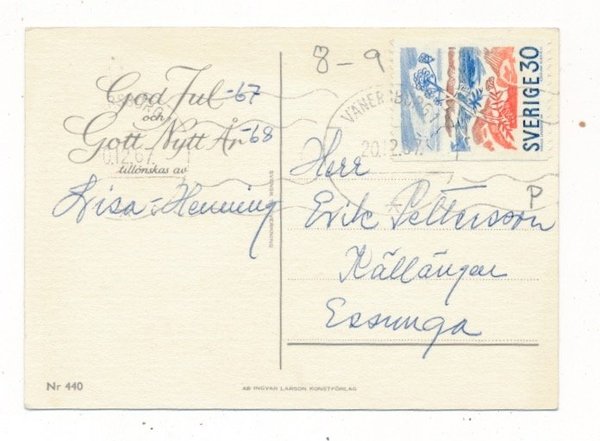 8-9
SVERIGE 30
VÄNERSBORG 1
20.12.67.
God Jul -67
och
Gott Nytt År -68
tillönskas av
Lisa - Henning
Herr
Erik Pettersson
P
Källängen
Essunga
Nr 440
AB INGVAR LARSON KONSTFÖRLAG